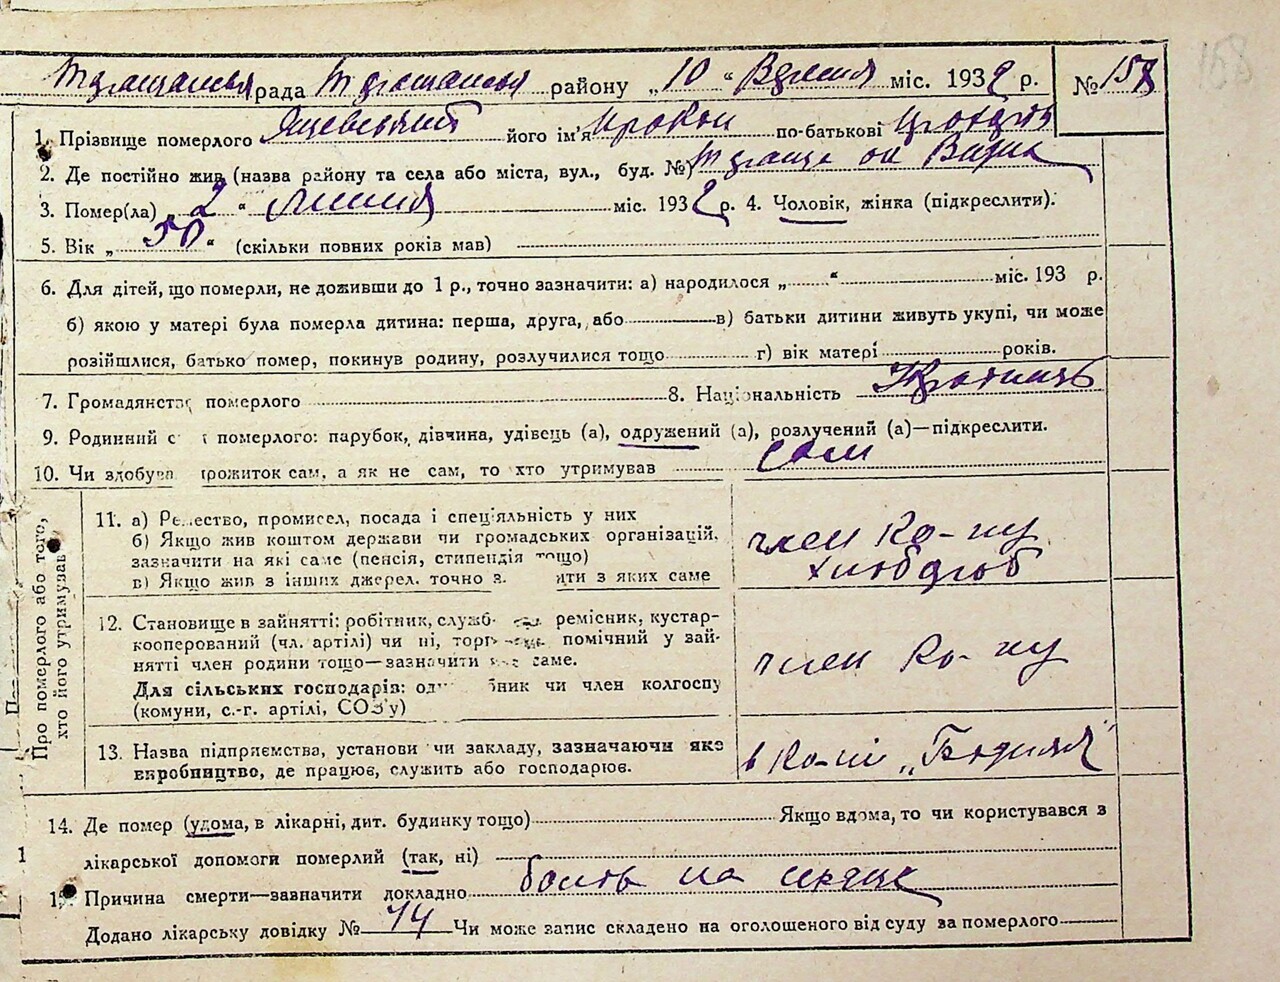 рада району „10 “ міс. 1932 р. № 158
158
1. Прізвище померлого його ім'я Прокоп по-батькові
2. Де постійно жив (назва району та села або міста, вул., буд. №)
3. Помер(ла) „ 2 “ липня міс. 1932 р. 4. Чоловік, жінка (підкреслити).
5. Вік „ 50 “ (скільки повних років мав)
6. Для дітей, що померли, не доживши до 1 р., точно зазначити: а) народилося „ “ міс. 193 р.
б) якою у матері була померла дитина: перша, друга, або в) батьки дитини живуть укупі, чи може
розійшлися, батько помер, покинув родину, розлучилися тощо г) вік матері років.
7. Громадянство померлого 8. Національність
9. Родинний с і померлого: парубок, дівчина, удівець (а), одружений (а), розлучений (а)—підкреслити.
10. Чи здобува рожиток сам, а як не сам, то хто утримував сам
Про померлого або того, хто його утримував
11. а) Ре..ество, промисел, посада і спец'яльність у них
б) Якщо жив коштом держави чи громадських організацій,
зазначити на які саме (пенсія, стипендія тощо)
в) Якщо жив з інших джерел, точно з ити з яких саме
член ко-пу
хлібороб
12. Становище в зайнятті: робітник, служб ремісник, кустар-
кооперований (чл. артілі) чи ні, торг помічний у зай-
нятті член родини тощо—зазначити саме.
Для сільських господарів: од бник чи член колгоспу
(комуни, с.-г. артілі, СОЗ'у)
член ко-пу
13. Назва підприємства, установи чи закладу, зазначаючи яке
виробництво, де працює, служить або господарює.
в ко-пі
14. Де помер (удома, в лікарні, дит. будинку тощо) Якщо вдома, то чи користувався з
1
лікарської допомоги померлий (так, ні)
15. Причина смерти—зазначити докладно на
Додано лікарську довідку № 74 Чи може запис складено на оголошеного від суду за померлого